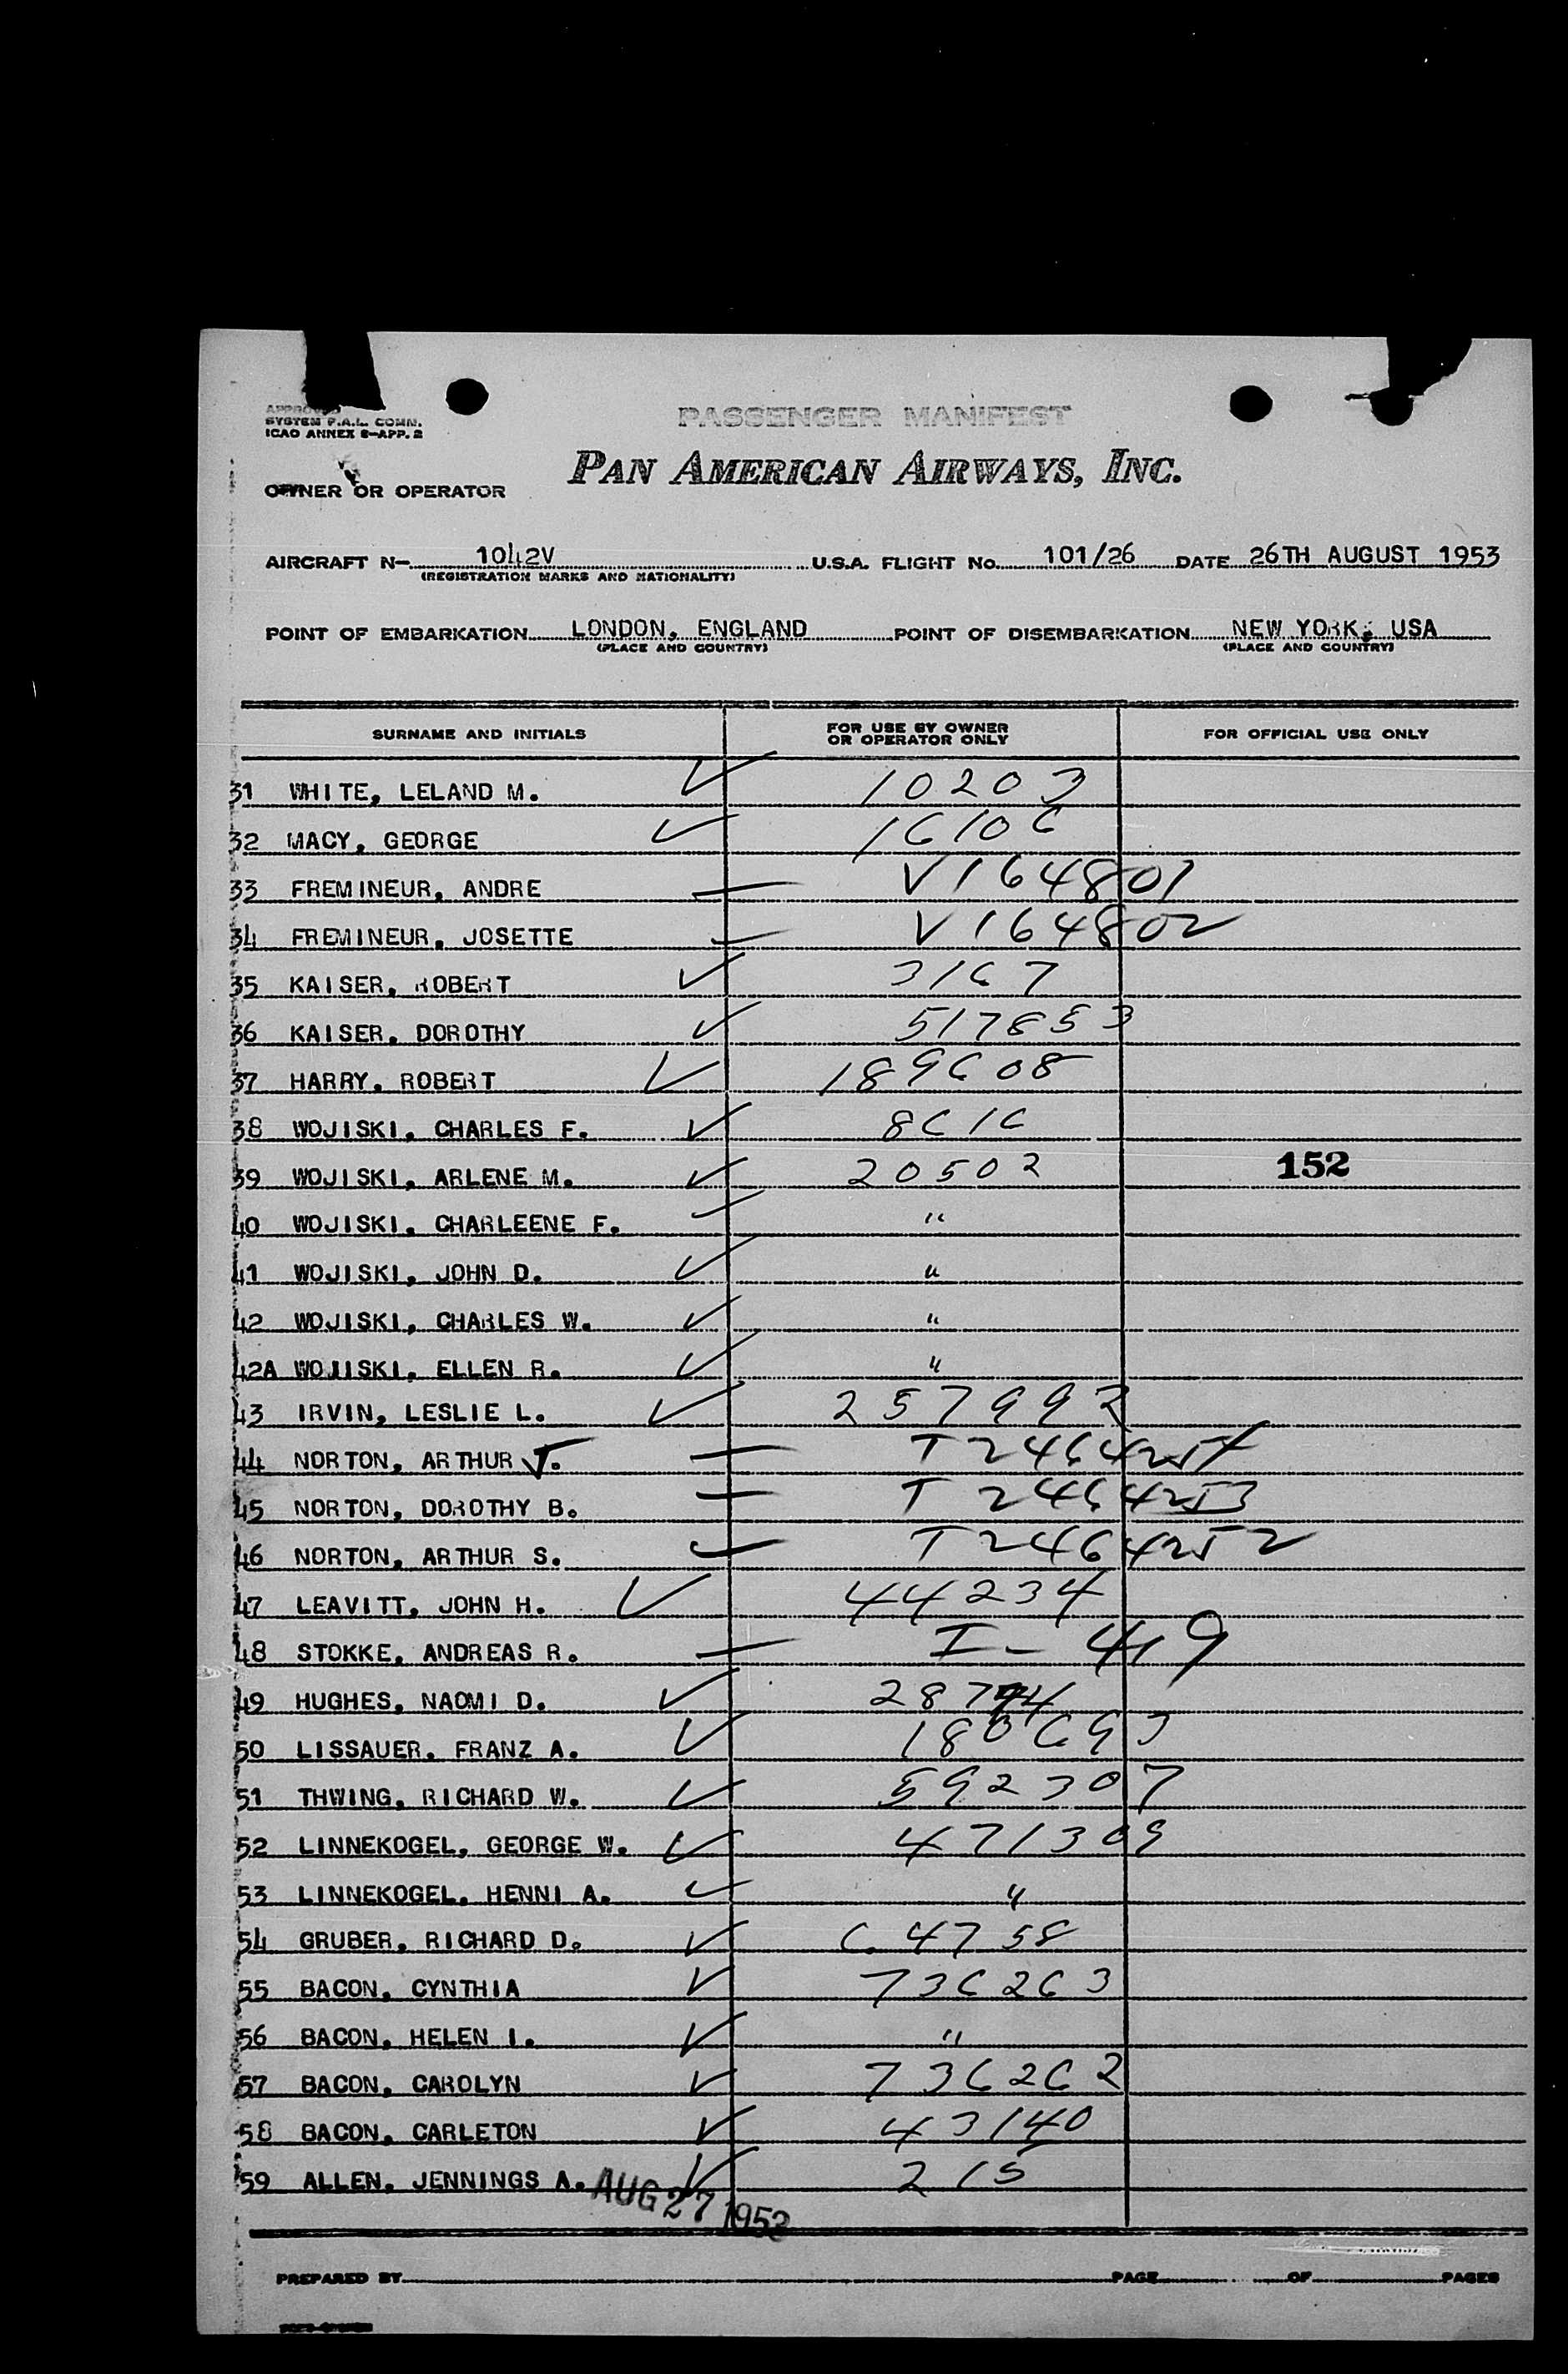 APPROVED
SYSTEM F.A.L. COMM.
ICAO ANNEX 8-APP. 2
PASSENGER MANIFEST
PAN AMERICAN AIRWAYS, INC.
OWNER OR OPERATOR
AIRCRAFT N- 1042V U.S.A. FLIGHT No. 101/26 DATE 26TH AUGUST 1953
(REGISTRATION MARKS AND NATIONALITY)
POINT OF EMBARKATION LONDON, ENGLAND POINT OF DISEMBARKATION NEW YORK, USA
(PLACE AND COUNTRY) (PLACE AND COUNTRY)
SURNAME AND INITIALS FOR USE BY OWNER OR OPERATOR ONLY FOR OFFICIAL USE ONLY
31 WHITE, LELAND M. ✓ 10203
32 MACY, GEORGE ✓ 16106
33 FREMINEUR, ANDRE — V164801
34 FREMINEUR, JOSETTE — V164802
35 KAISER, ROBERT ✓ 3167
36 KAISER, DOROTHY ✓ 517853
37 HARRY, ROBERT ✓ 189608
38 WOJISKI, CHARLES F. ✓ 8616
39 WOJISKI, ARLENE M. ✓ 20502 152
40 WOJISKI, CHARLEENE F. ✓ "
41 WOJISKI, JOHN D. ✓ "
42 WOJISKI, CHARLES W. ✓ "
42A WOJISKI, ELLEN R. ✓ "
43 IRVIN, LESLIE L. ✓ 257992
44 NORTON, ARTHUR J. — T2464254
45 NORTON, DOROTHY B. — T2464253
46 NORTON, ARTHUR S. — T2464252
47 LEAVITT, JOHN H. ✓ 44234
48 STOKKE, ANDREAS R. — I-419
49 HUGHES, NAOMI D. ✓
50 LISSAUER, FRANZ A. ✓ 180693
51 THWING, RICHARD W. ✓ 592307
52 LINNEKOGEL, GEORGE W. ✓ 471309
53 LINNEKOGEL, HENNI A. ✓ "
54 GRUBER, RICHARD D. ✓ C. 4758
55 BACON, CYNTHIA ✓ 736263
56 BACON, HELEN I. ✓ "
57 BACON, CAROLYN ✓ 736262
58 BACON, CARLETON ✓ 43140
59 ALLEN, JENNINGS A. ✓ 215
AUG 27 1953
PREPARED BY PAGE OF PAGES